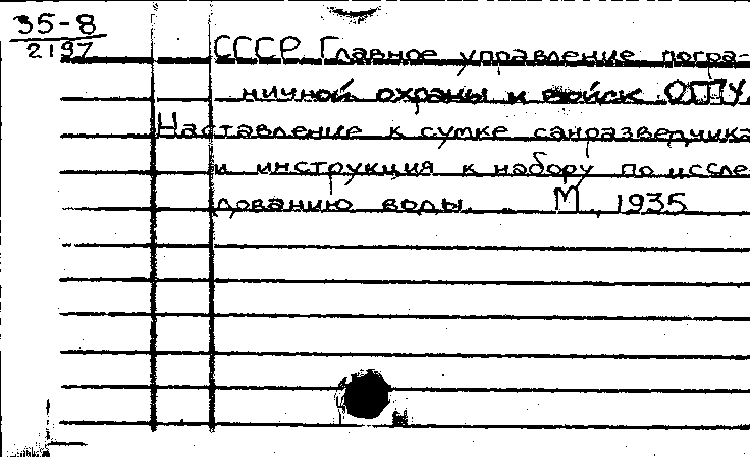 35-8
2197
СССР. Главное управление погра-
ничной охраны и войск ОГПУ.
Наставление к сумке санразведчика
и инструкция к набору по иссле-
дованию воды. М., 1935